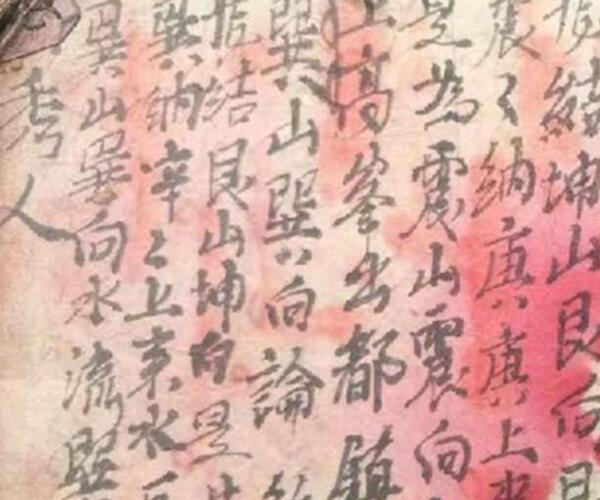 結坤山艮向
震〻納庚〻庚〻上來
是為震山震向
上高峯出都鎮
巽山巽〻向論
結艮山坤向是
巽納辛〻上來水
巽山巽向水流巽
秀人